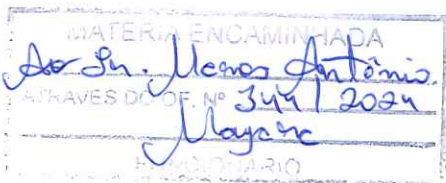 MATÉRIA ENCAMINHADA
Ao Sr. Marcos Antônio
ATRAVÉS DO OF. Nº 344 / 2024
Mayara
FUNCIONÁRIO